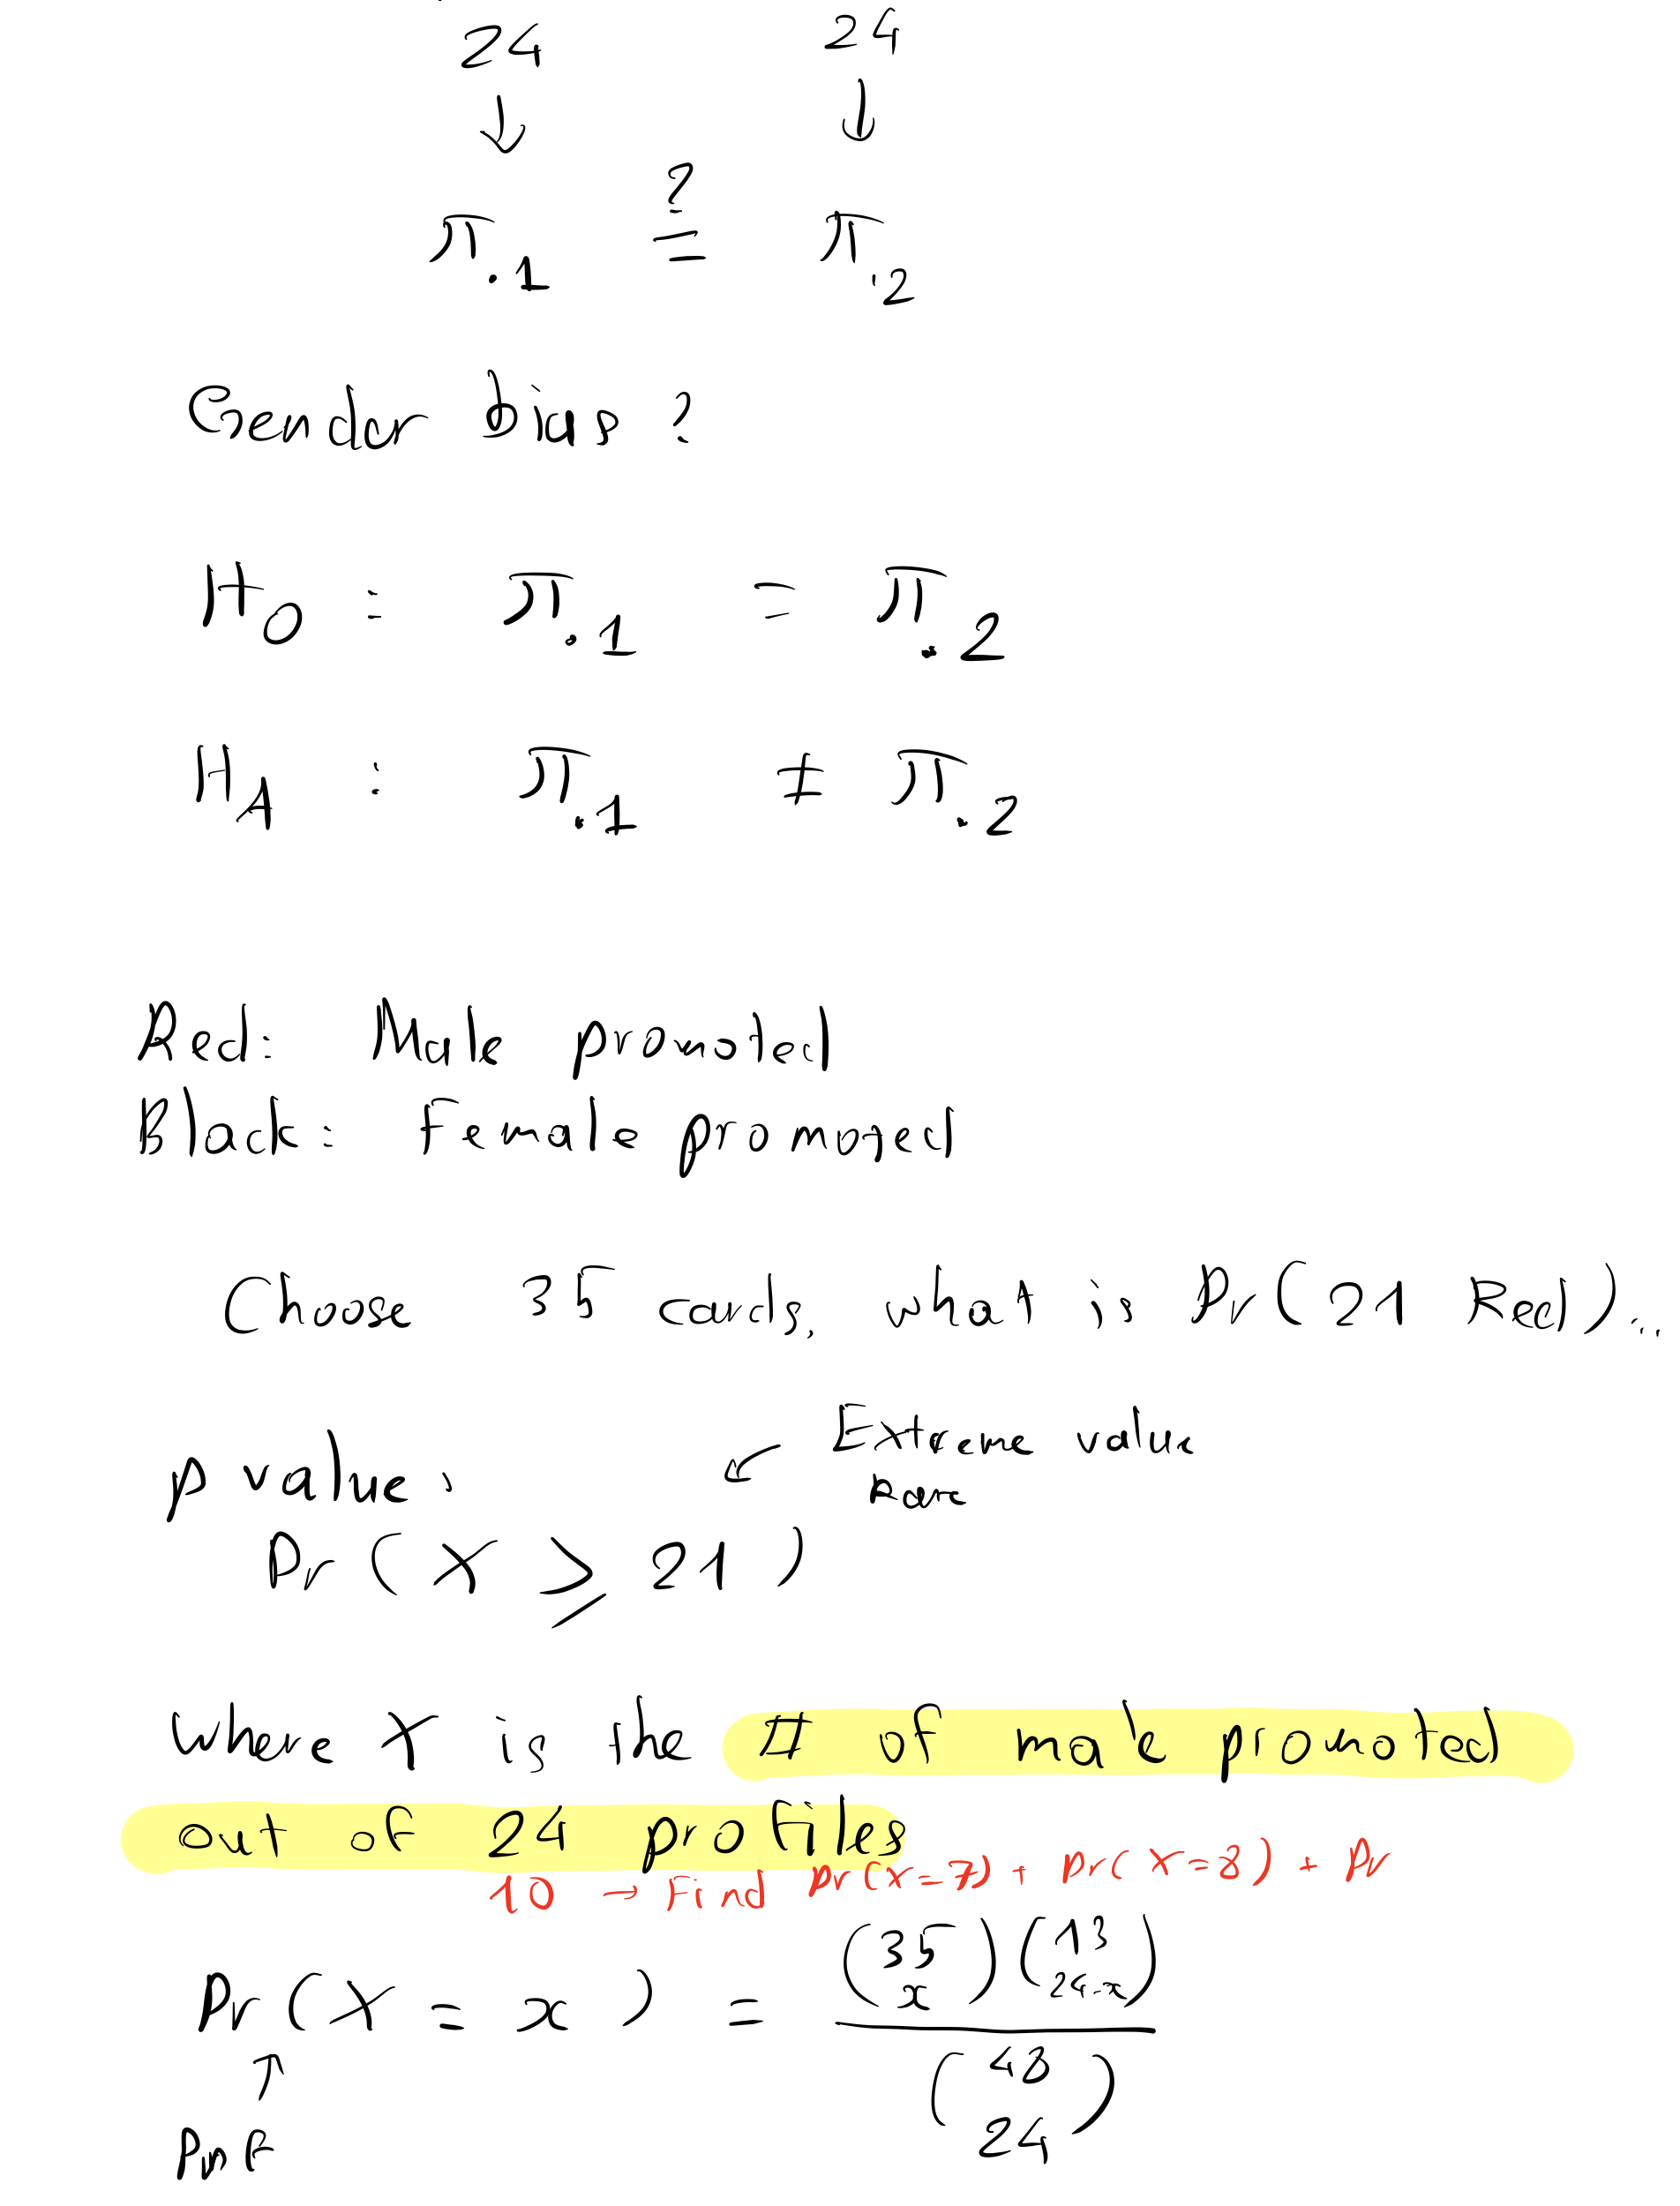 24 24
↓ ↓
π.1 ?= π.2
Gender bias ?
H0 : π.1 = π.2
HA : π.1 ≠ π.2
Red: Male promoted
Black: Female promoted
Choose 35 cards, what is Pr(21 Red)...
p value: ↙ Extreme value
Rare
Pr(X ≥ 21)
where X is the # of male promoted
out of 24 profiles
10 → Find Pr(X=7) + Pr(X=8) + Pr
Pr(X = x) = (35 x)(13 24-x) / (48 24)
↑
pmf